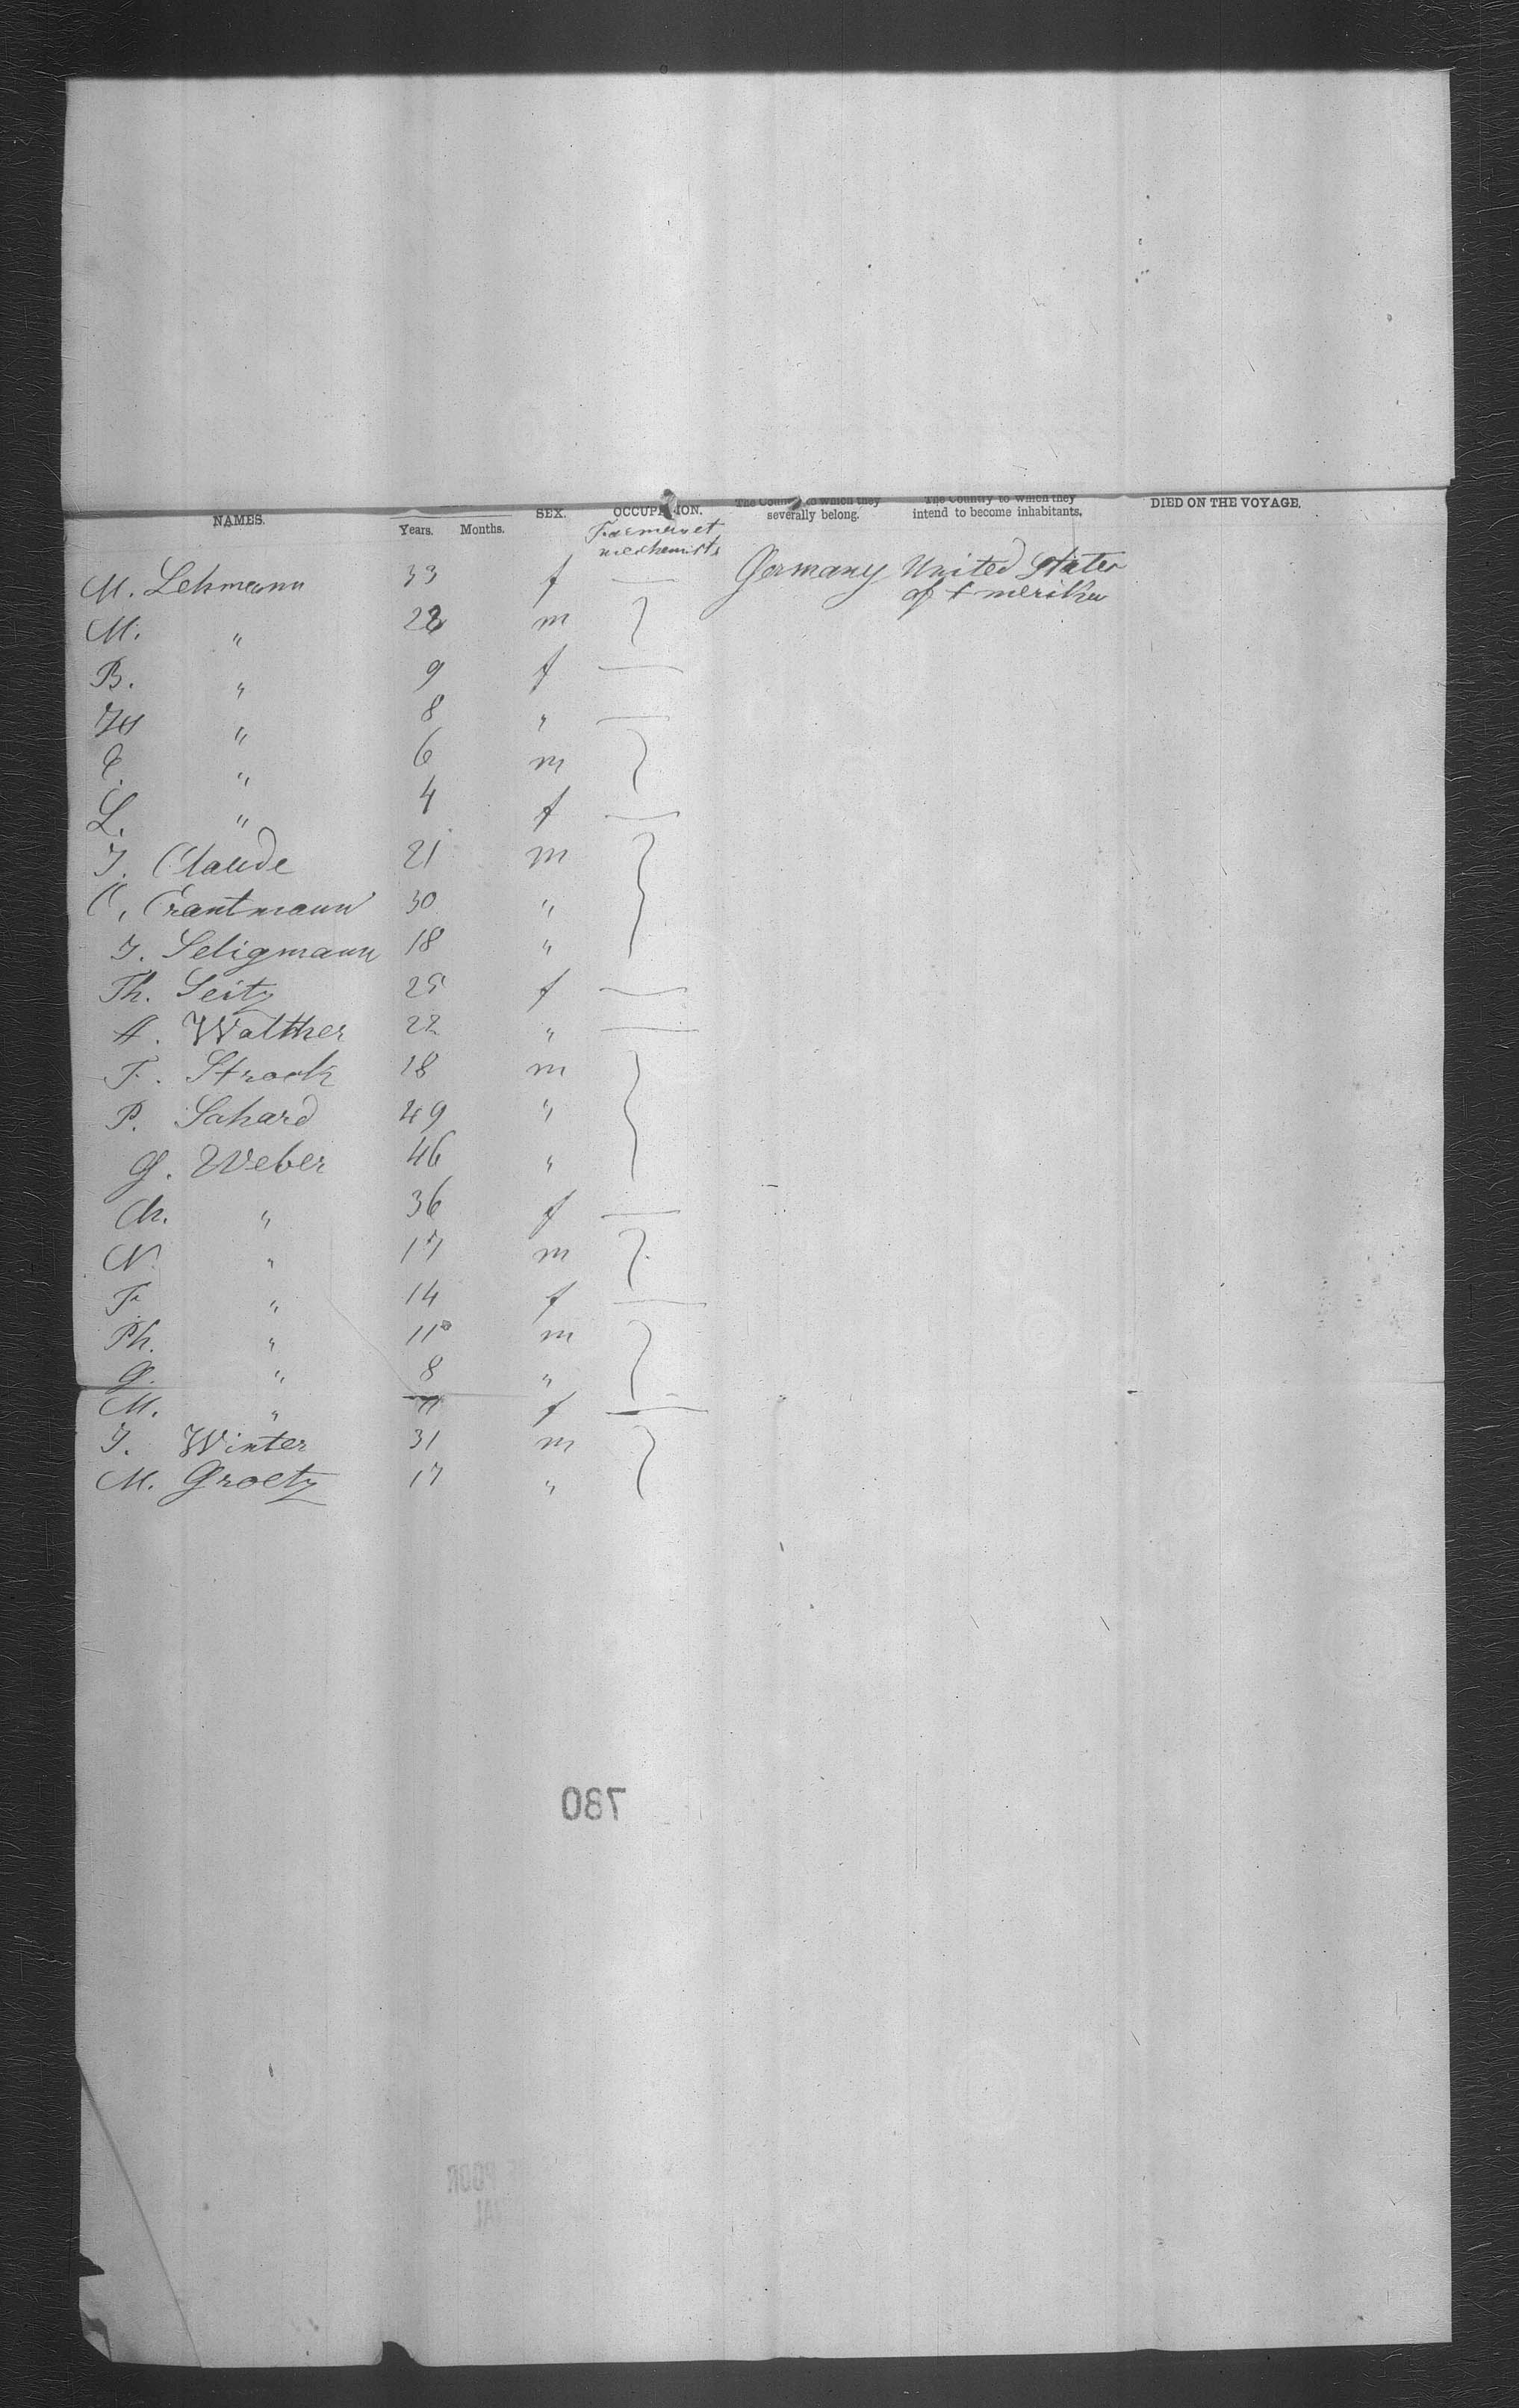 NAMES. Years. Months. SEX. OCCUPATION. The Country to which they severally belong. The Country to which they intend to become inhabitants. DIED ON THE VOYAGE.
Farmer et
mechanists
M. Lehmann 33 f — Germany United States
of Amerika
M. " 22 m
B. " 9 f —
" 8 " —
C. " 6 m
L. " 4 f —
J. Claude 21 m
C. Erantmann 30 "
J. Seligmann 18 "
Th. Seitz 25 f —
A. Walther 22 " —
F. Strock 18 m
P. Sahard 49 "
G. Weber 46 "
Ch. " 36 f —
N. " 17 m
F. " 14 f —
Ph. " 11 m
G. " 8 "
M. " f —
J. Winter 31 m
M. Groetz 17 "
780